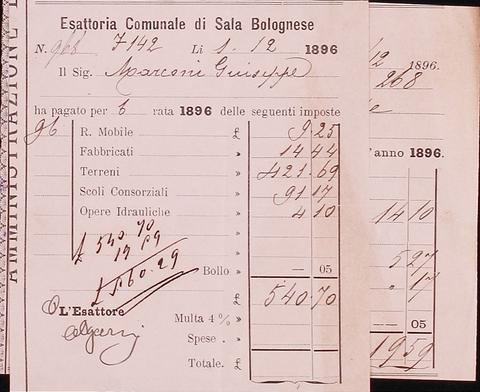 AMMINISTRAZIONE
Esattoria Comunale di Sala Bolognese
N. 968 7142 Li 1. 12 1896
Il Sig. Marconi Giuseppe
ha pagato per 6 rata 1896 delle seguenti imposte
96 R. Mobile £ 9 25
Fabbricati » 14 44
Terreni » 421 69
Scoli Consorziali » 91 17
Opere Idrauliche » 4 10
£ 540.70
19 59
£ 560.29
Bollo » — 05
£ 540 70
L'Esattore
Multa 4 % »
Spese . »
Totale. £
12 1896.
268
l'anno 1896.
14 10
5 27
" 17
— 05
19 59